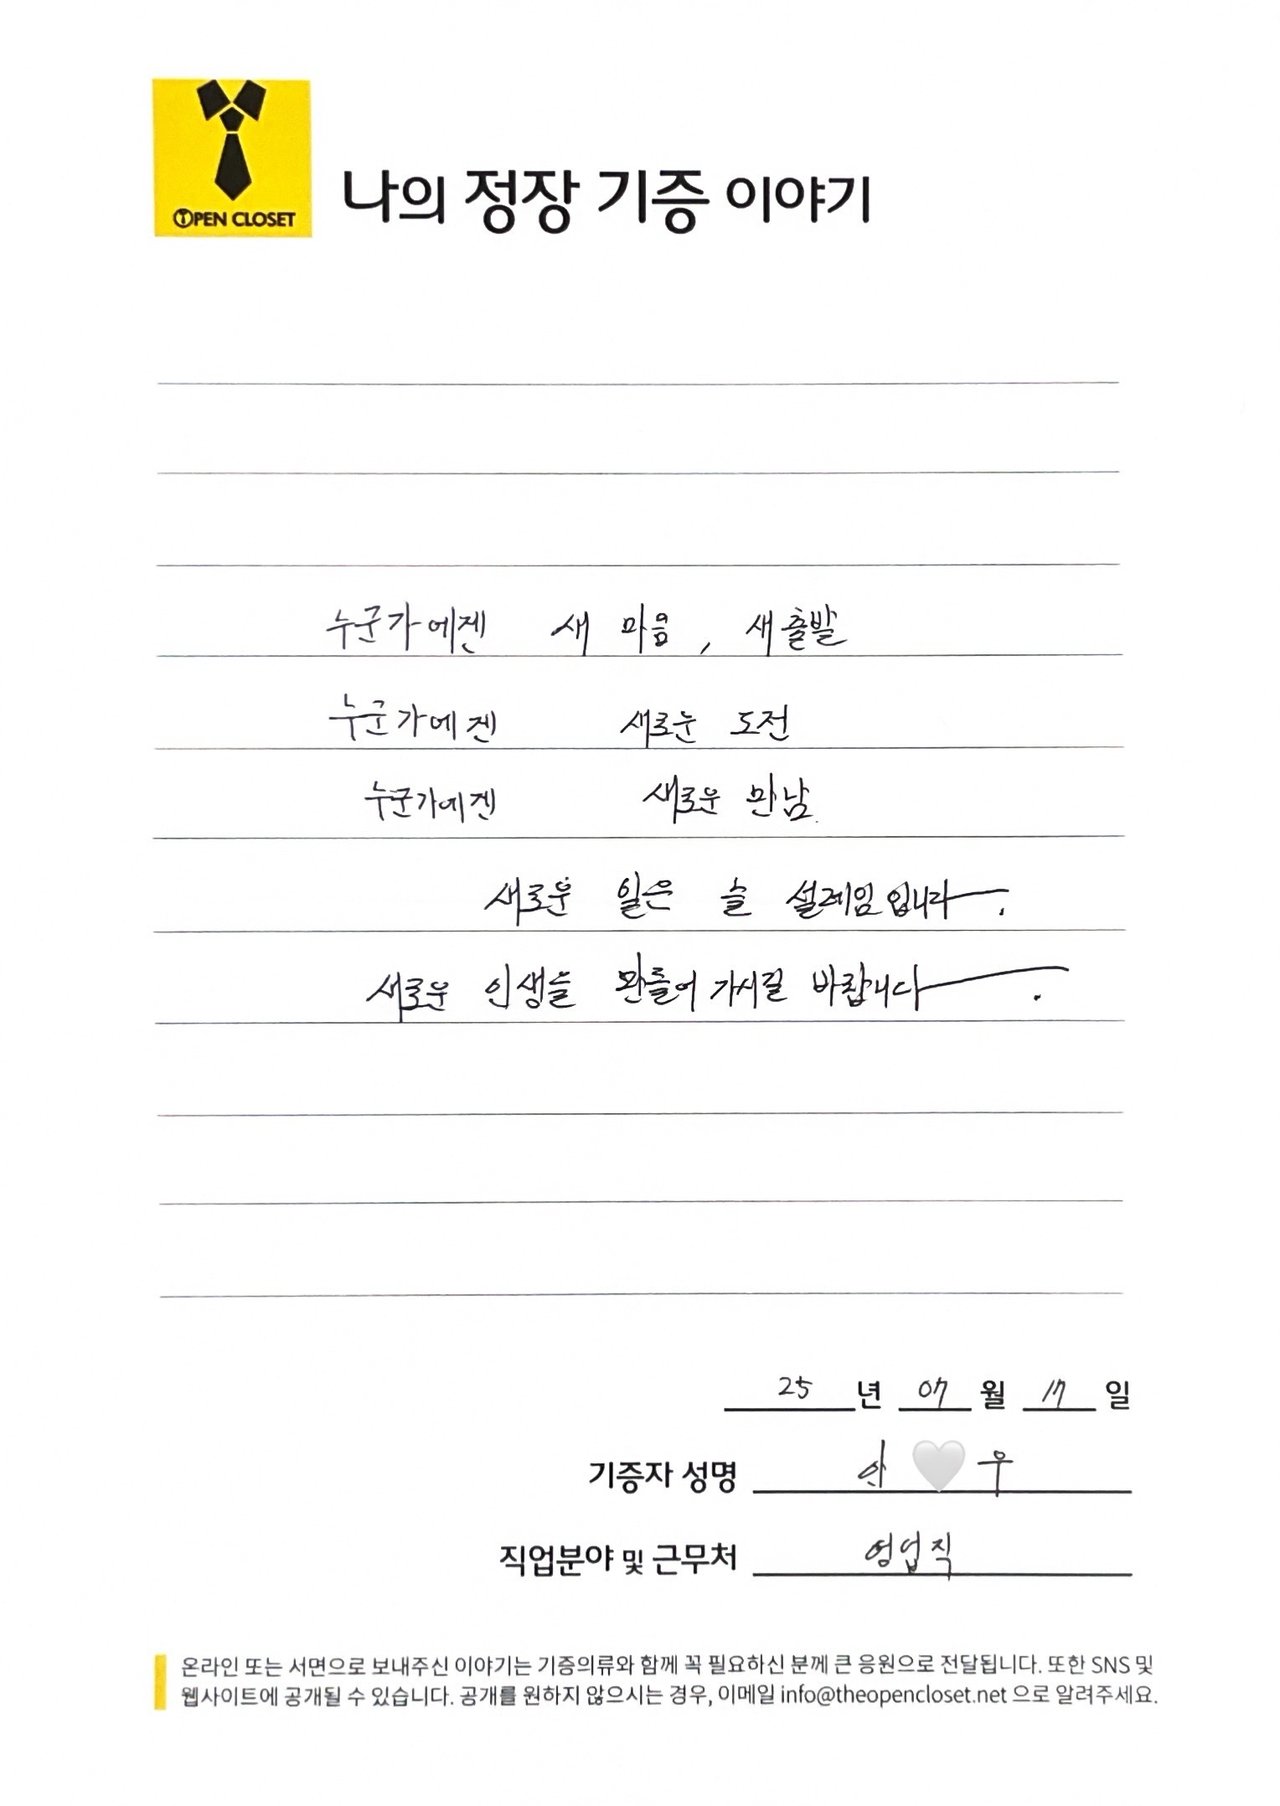 OPEN CLOSET
나의 정장 기증 이야기
누군가에겐 새 마음, 새출발
누군가에겐 새로운 도전
누군가에겐 새로운 만남.
새로운 일은 늘 설레임입니다.
새로운 인생을 만들어 가시길 바랍니다.
25 년 07 월 17 일
기증자 성명 안 🤍 우
직업분야 및 근무처 영업직
온라인 또는 서면으로 보내주신 이야기는 기증의류와 함께 꼭 필요하신 분께 큰 응원으로 전달됩니다. 또한 SNS 및
웹사이트에 공개될 수 있습니다. 공개를 원하지 않으시는 경우, 이메일 info@theopencloset.net 으로 알려주세요.